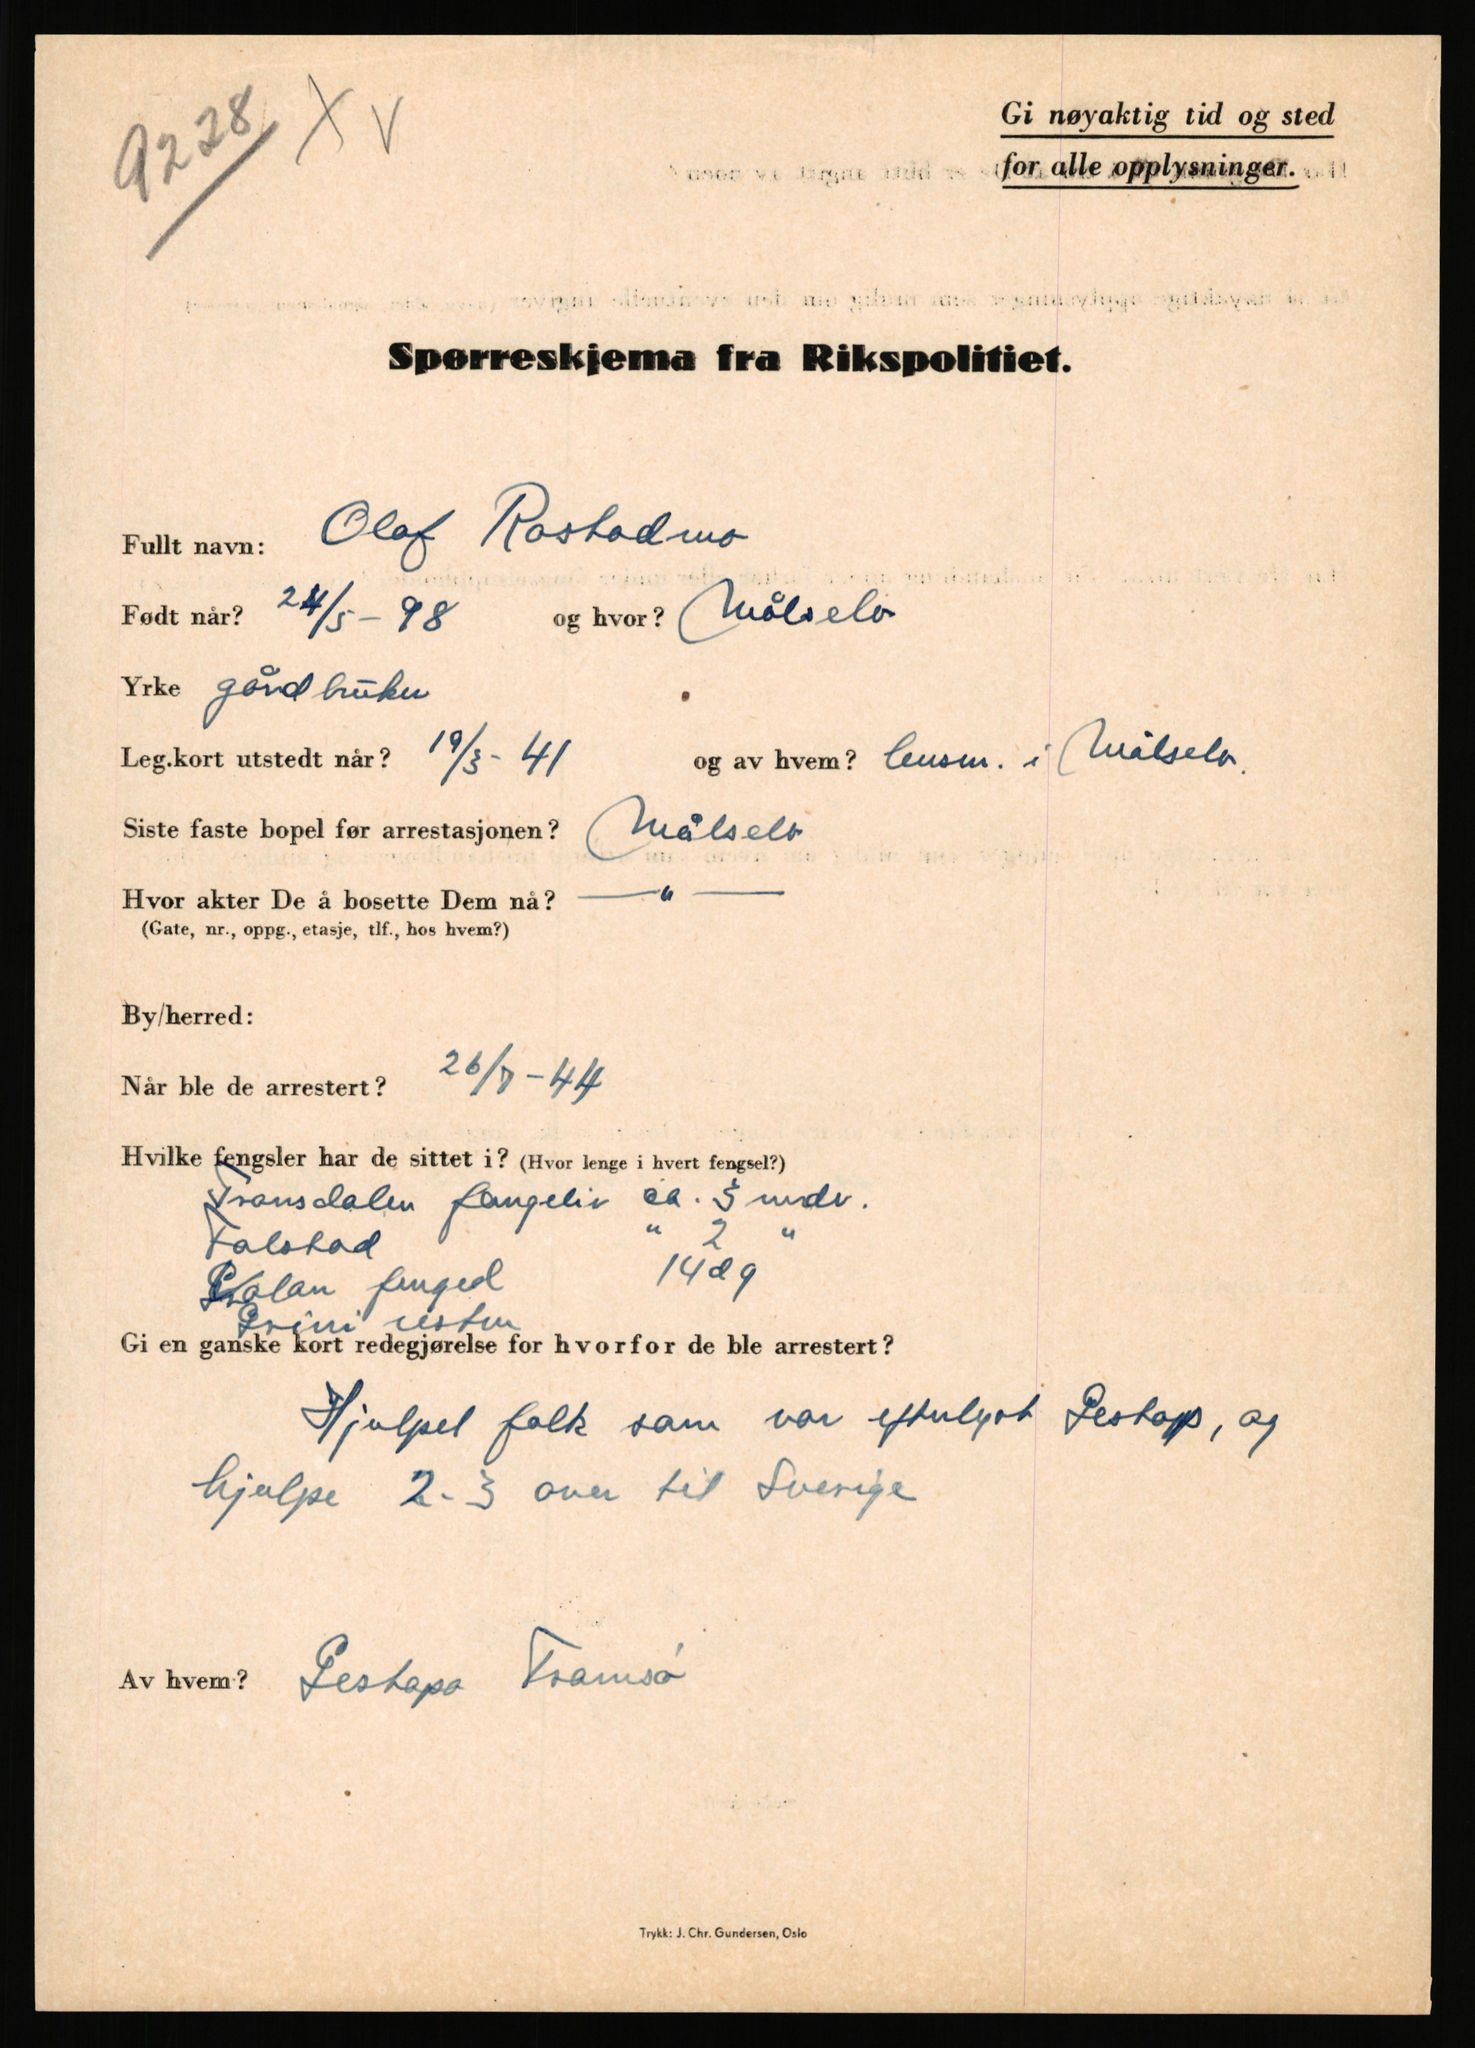 9228 X V
Gi nøyaktig tid og sted
for alle opplysninger.
Spørreskjema fra Rikspolitiet.
Fullt navn: Olaf Rostadmo
Født når? 24/5 - 98 og hvor? Målselv
Yrke gårdbruker
Leg.kort utstedt når? 19/3 - 41 og av hvem? lensm. i Målselv.
Siste faste bopel før arrestasjonen? Målselv
Hvor akter De å bosette Dem nå? — " —
(Gate, nr., oppg., etasje, tlf., hos hvem?)
By/herred:
Når ble de arrestert? 26/7 - 44
Hvilke fengsler har de sittet i? (Hvor lenge i hvert fengsel?)
Tromsdalen fangeleir ca. 3 mdr.
Falstad " 2 "
14 dg
Grini resten
Gi en ganske kort redegjørelse for hvorfor de ble arrestert?
Hjulpet folk som var efterlyst Gestapo, og
hjelpe 2-3 over til Sverige
Av hvem? Gestapo Tromsø
Trykk: J. Chr. Gundersen, Oslo